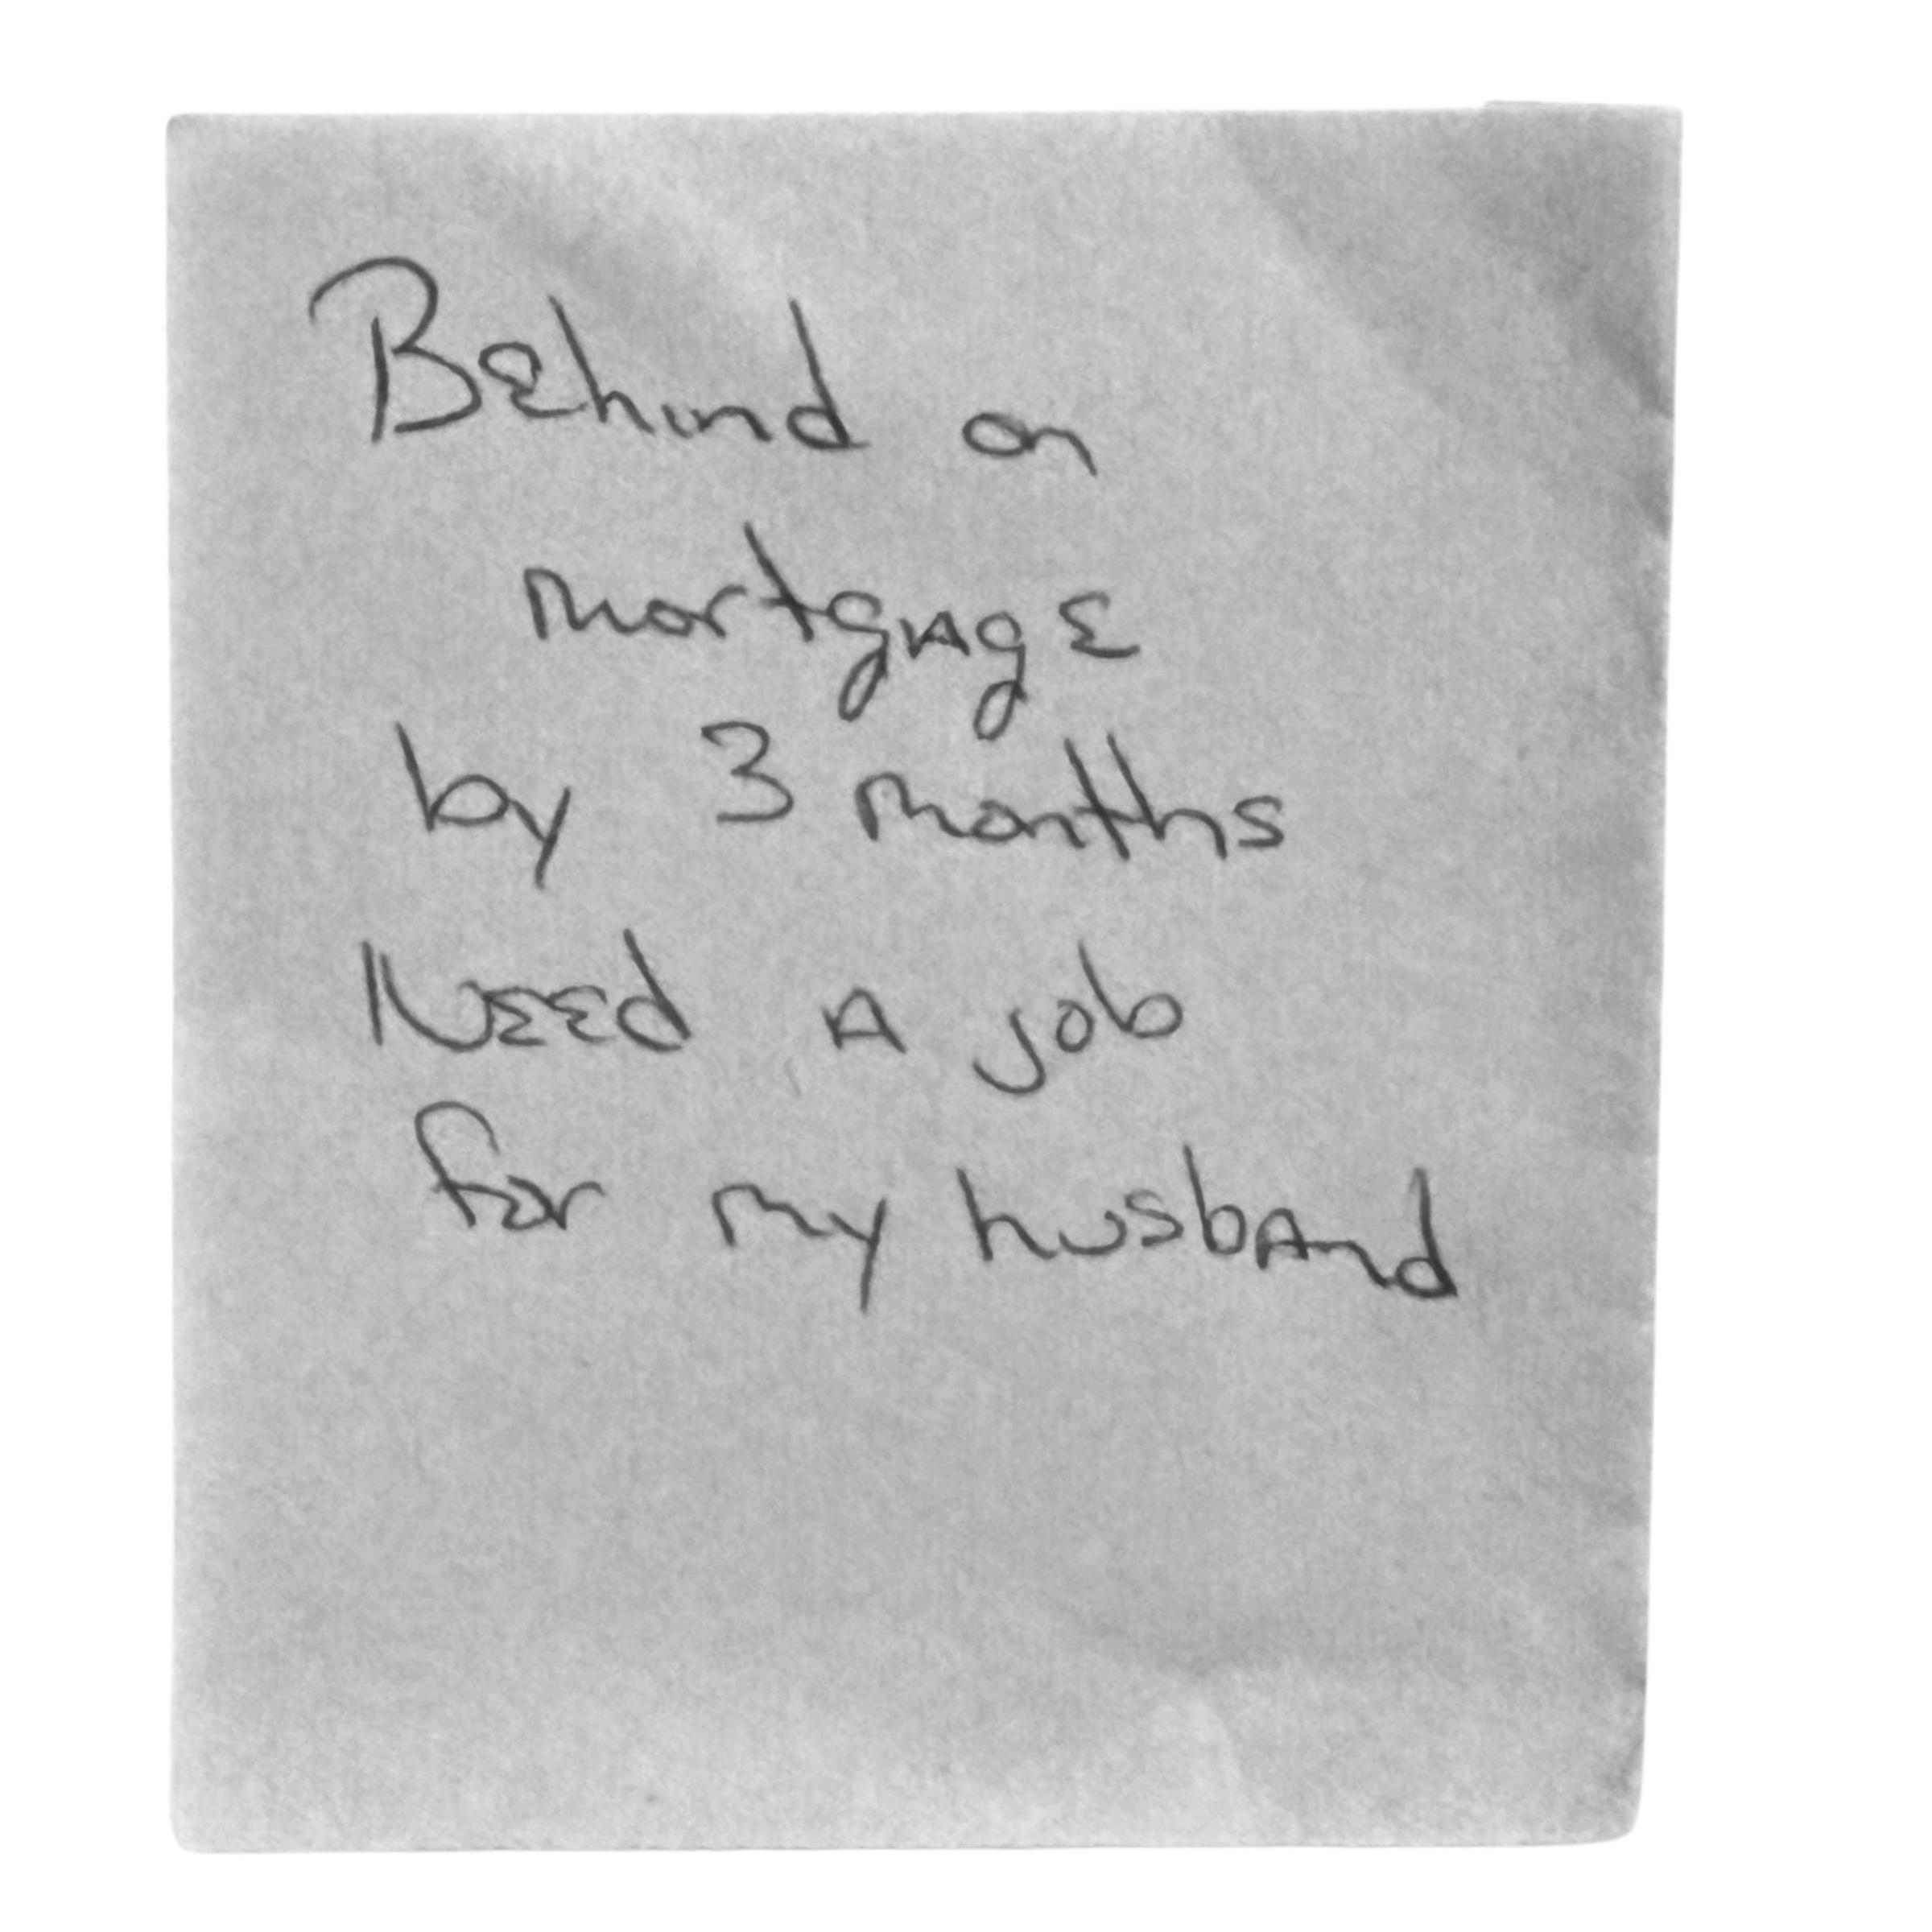 Behind on
mortgage
by 3 months
Need a job
for my husband